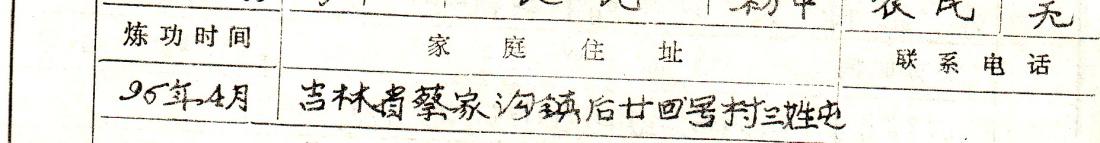 初中 农民 无
炼功时间 家庭住址 联系电话
96年4月 吉林省蔡家沟镇后廿四号村三姓屯